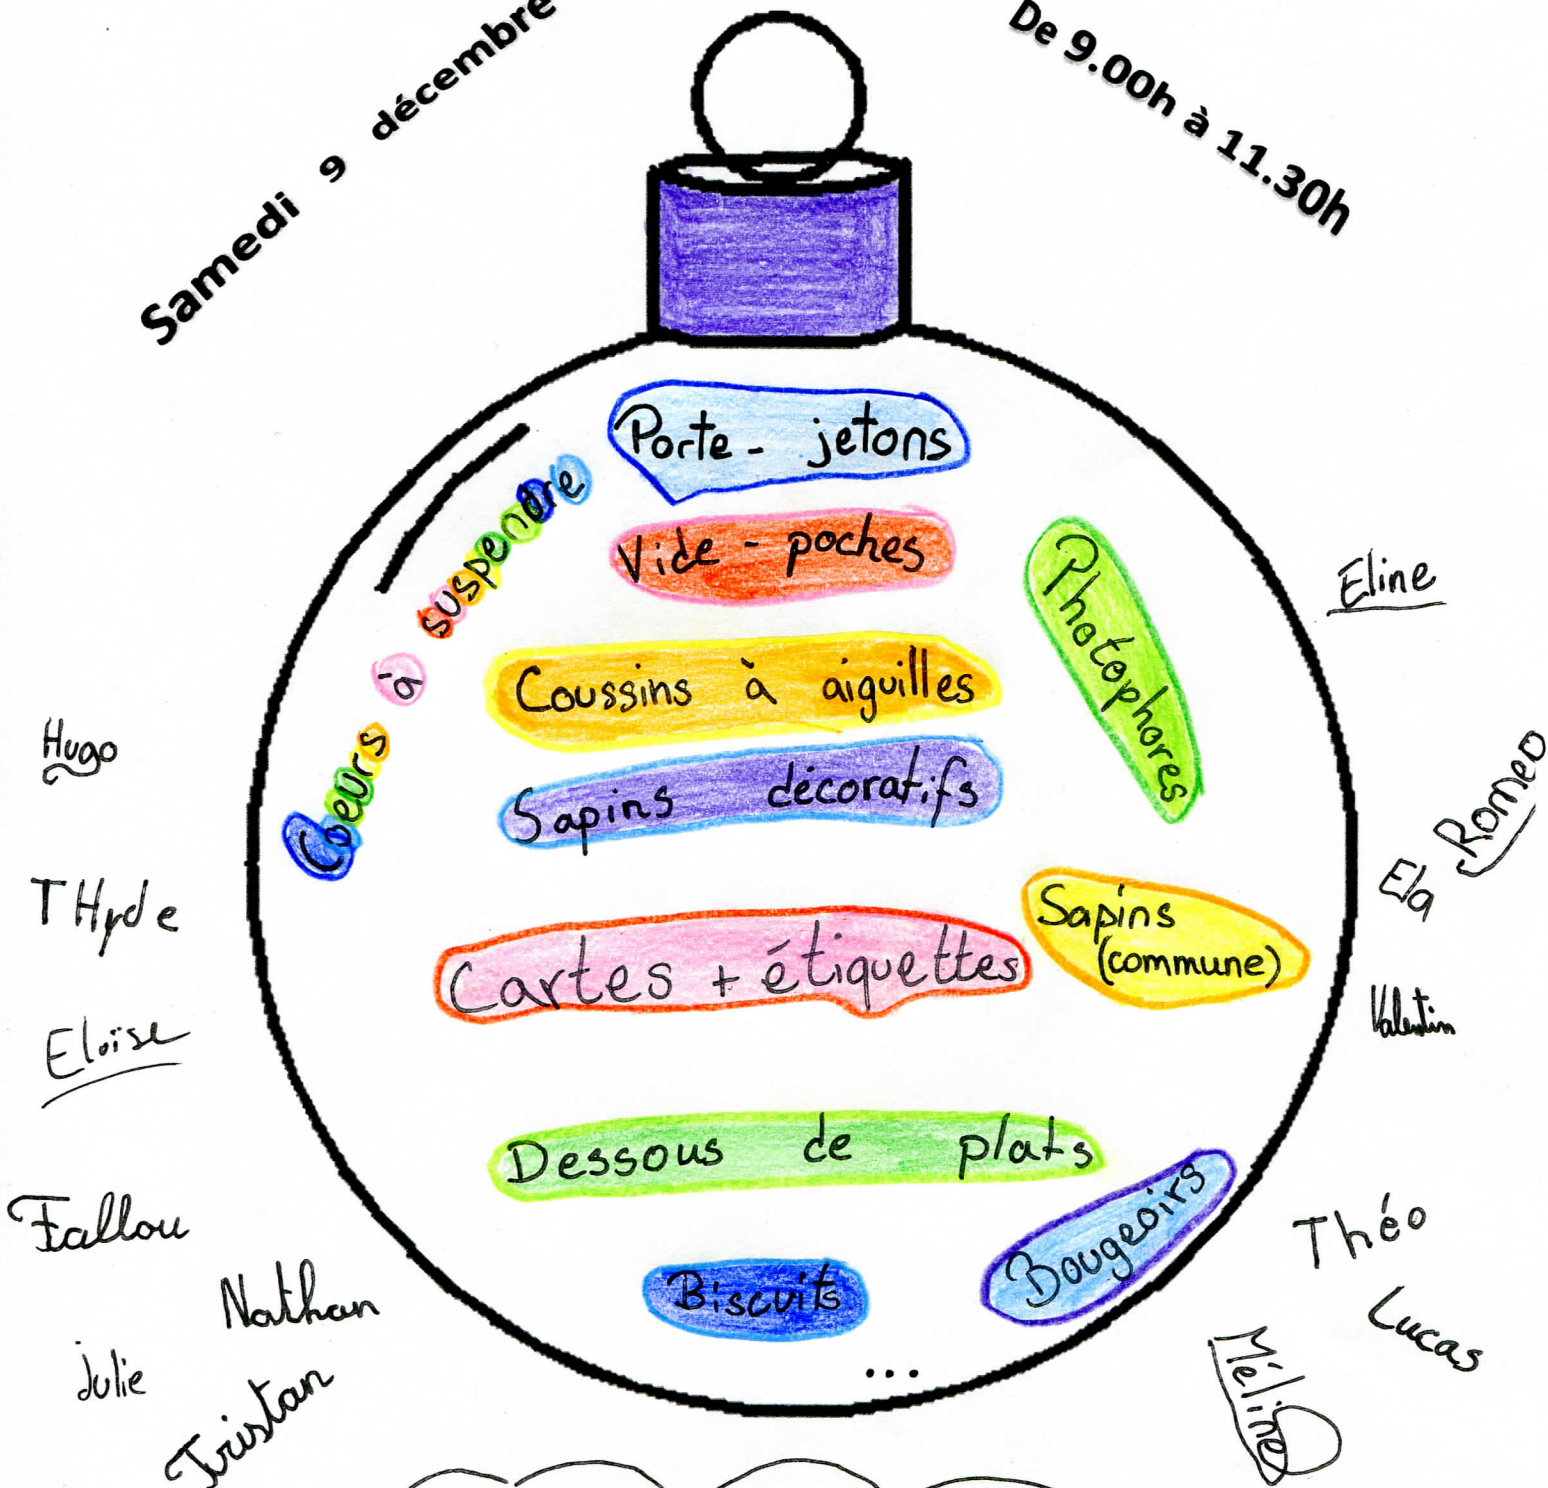 Samedi 9 décembre
De 9.00h à 11.30h
Porte - jetons
Coeurs à suspendre
Vide - poches
Photophores
Coussins à aiguilles
Sapins décoratifs
Sapins
(commune)
Cartes + étiquettes
Dessous de plats
Bougeoirs
Biscuits
...
Hugo
Eloïse
Fallou
Nathan
Julie
Tristan
Eline
Romeo
Ela
Valentin
Théo
Lucas
Méline